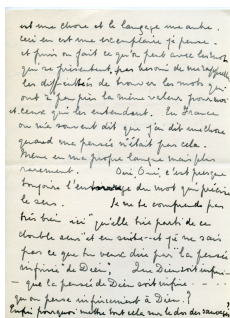 est une chose et le langage une autre.
ceci en est une exemplaire je pense.
et puis on fait ce qu'on peut avec les mots
qui se présentent, pas besoin de me rappeler
les difficultés de trouver les mots qui
ont à peu près la même valeur pour moi
et ceux qui les entendent. En France
on m'a souvent dit que j'ai dit une chose
quand ma pensée n'était pas cela.
Même en ma propre langue mais plus
rarement. Oui, Oui, c'est presque
toujours l'entourage du mot qui précise
le sens. Je ne te comprends pas
très bien ici "qu'elle tire parti de ce
double sens" et en suite--et je ne sais
pas ce que tu veux dire par "la pensée
infinie de Dieu", Que Dieu soit infini--
- que la pensée de Dieu soit infinie. - - -
qu'on pense infiniment à Dieu.?
Enfin pourquoi mettre tout cela sur le dos des sauvages